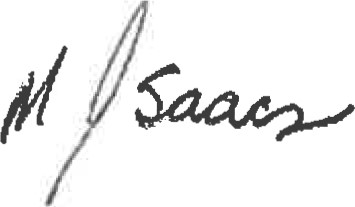 M Isaacs